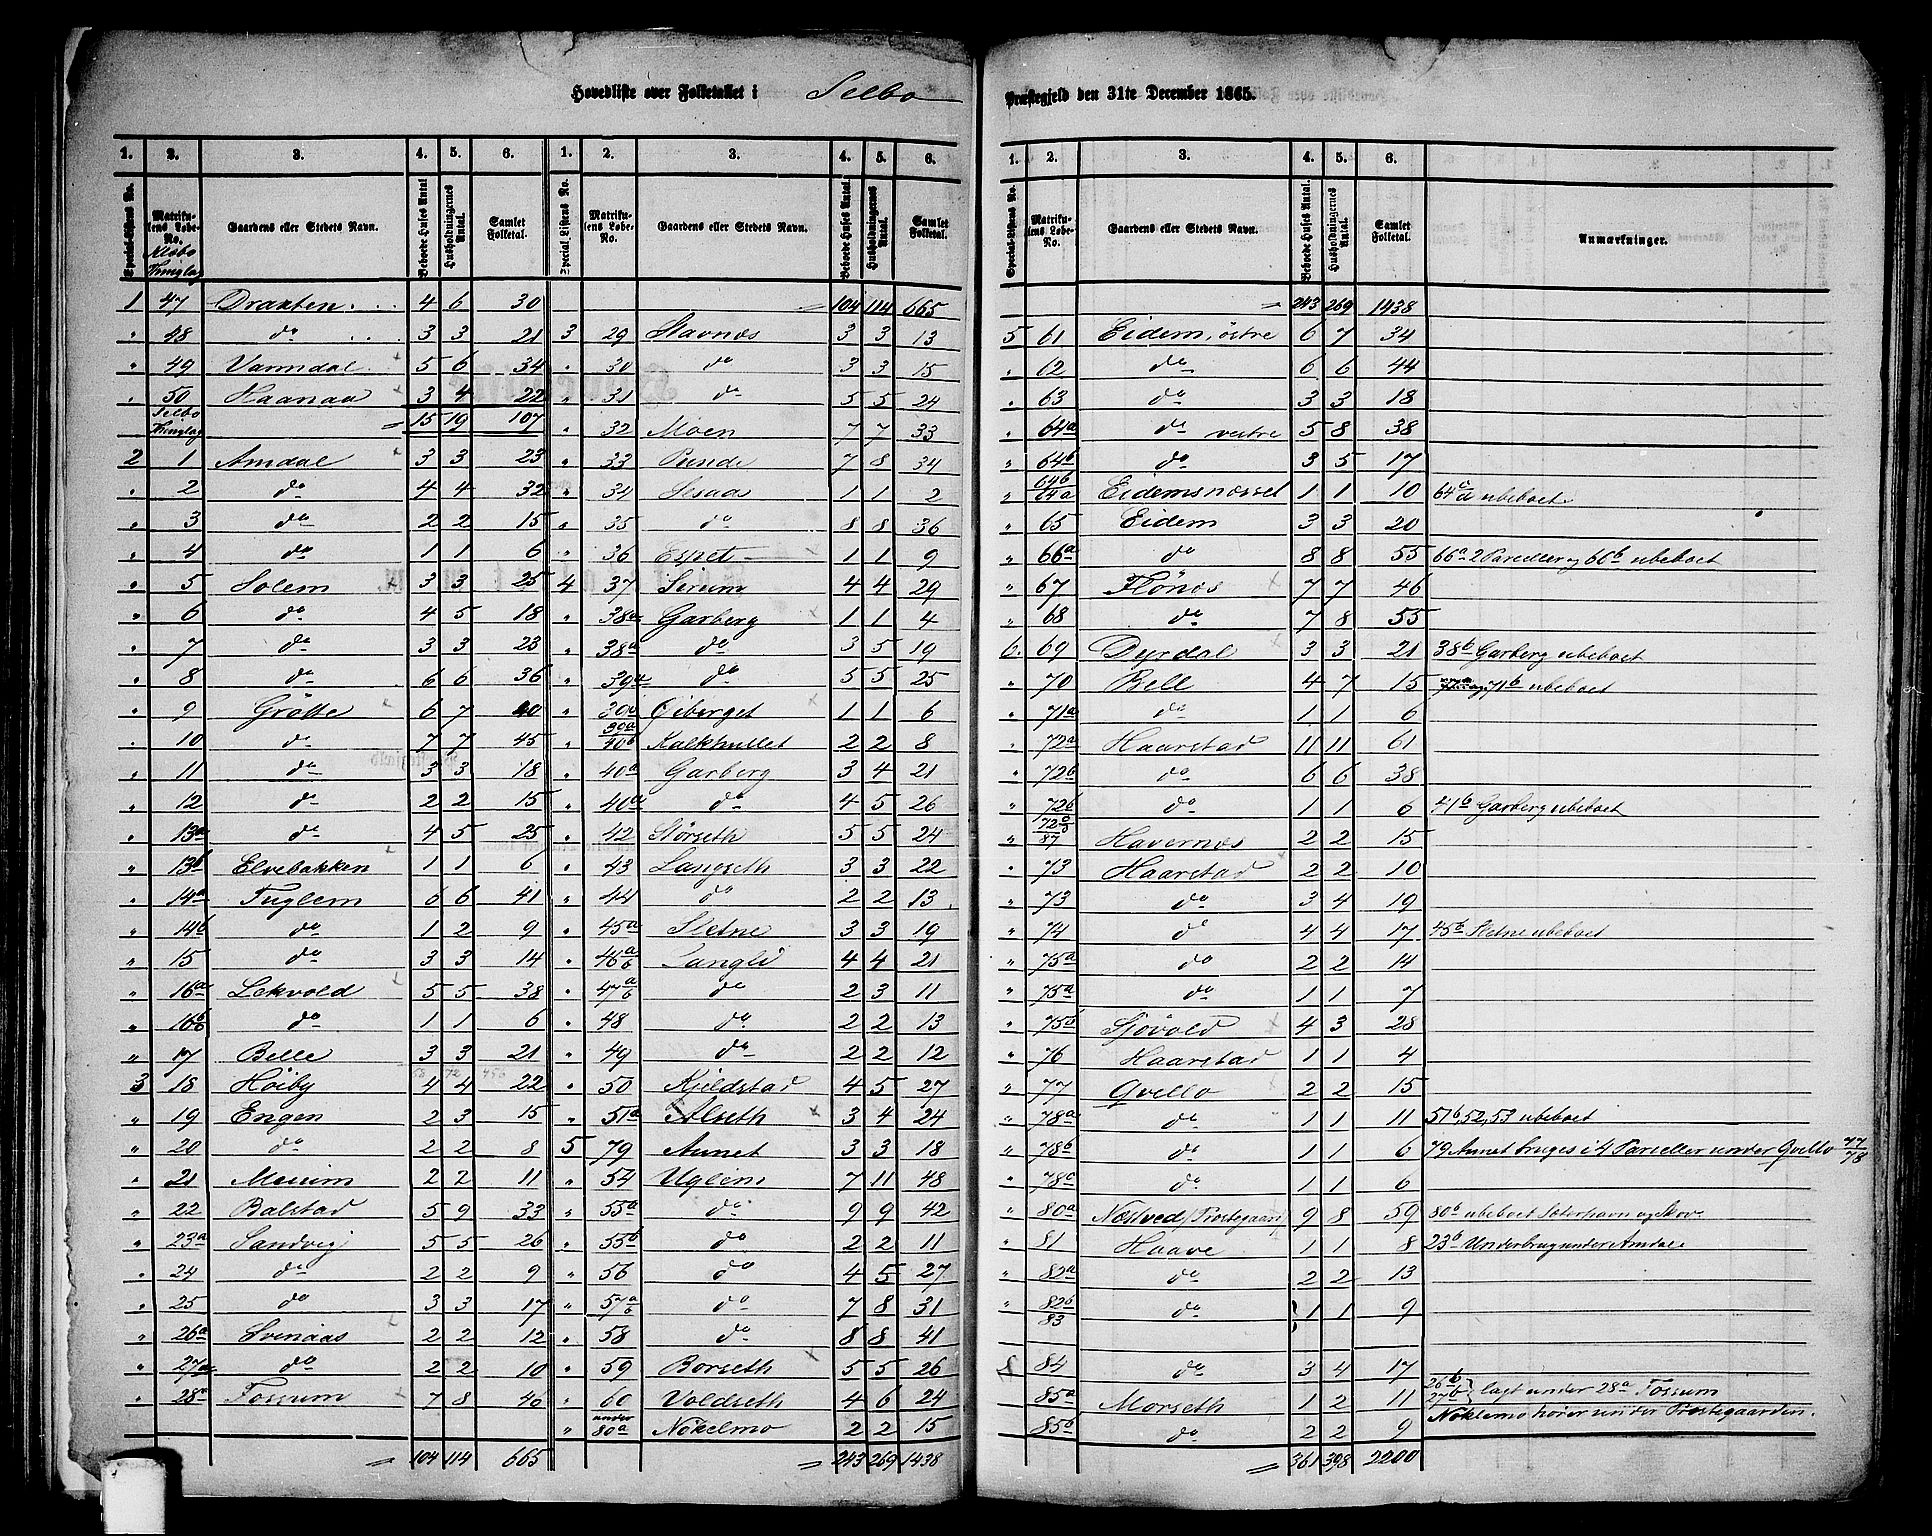 Hovedliste over Folketallet i Selbo Præstegjeld den 31te December 1865.
1. 2. 3. 4. 5. 6. 1. 2. 3. 4. 5. 6.
Special-Listens No. Matrikulens Løbe-No. Gaardens eller Stedets Navn. Beboede Huses Antal Husholdningernes Antal. Samlet Folketal. Special-Listens No. Matrikulens Løbe-No. Gaardens eller Stedets Navn. Beboede Huses Antal. Husholdningernes Antal. Samlet Folketal.
Klæbo Thinglag
1 47 Draxten 4 6 30
" 48 do 3 3 21
" 49 Vanndal 5 6 34
" 50 Haanaa 3 4 22
Selbo Thinglag = 15 19 107
2 1 Amdal 3 3 23
" 2 do 4 4 32
" 3 do 2 2 15
" 4 do 1 1 6
" 5 Solem 3 3 25
" 6 do 4 5 18
" 7 do 3 3 23
" 8 do 6 6 36
" 9 Grötte 6 7 40
" 10 do 7 7 45
" 11 do 3 3 18
" 12 do 2 2 15
" 13a do 4 5 25
" 13b Elvebakken 1 1 6
" 14a Fuglem 6 6 41
" 14b do 1 2 9
" 15 do 3 3 14
" 16a Lekvold 5 5 38
" 16b do 1 1 6
" 17 Belle 3 3 21
58 72 456
3 18 Höiby 4 4 22
" 19 Engen 2 3 15
" 20 do 2 2 8
" 21 Meium 2 2 11
" 22 Balstad 5 9 33
" 23a Sandvig 5 5 26
" 24 do 2 2 9
" 25 do 3 3 17
" 26a Svenaas 2 2 12
" 27a do 2 2 10
" 28a Fossum 7 8 40
= 104 114 665
= 104 114 665
3 29 Stavnæs 3 3 13
" 30 do 3 3 15
" 31 do 5 5 24
" 32 Moen 7 7 33
" 33 Punde 7 8 34
" 34 Sesaas 1 1 2
" 35 do 8 8 36
" 36 Espet 1 1 9
4 37 Sirum 4 4 29
" 38a Garberg 1 1 4
" 38a do 3 5 19
" 39a do 5 5 25
" Öiberget 1 1 6
" 39a/40b Kalkhullet 2 2 8
" 40a Garberg 3 4 21
" 40a do 4 5 26
" 42 Störseth 5 5 24
" 43 Langseth 3 3 22
" 44 do 2 2 13
" 45a Sletne 3 3 19
" 46a/b Langli 4 4 21
" 47a/b do 2 3 11
" 48 do 2 2 13
" 49 do 2 2 12
" 50 Kjeldstad 4 5 27
" 51a Alseth 3 4 24
5 79 Aunet 3 3 18
" 54 Uglem 7 11 48
" 55a do 9 9 42
" 55b do 2 2 11
" 56 do 4 5 27
" 57a/b do 7 8 31
" 58 do 8 8 41
" 59 Borseth 5 5 26
" 60 Voldseth 4 6 24
" under 80a Nökelmo 2 2 15
= 243 269 1438
1. 2. 3. 4. 5. 6.
Special-Listens No. Matrikulens Løbe-No. Gaardens eller Stedets Navn. Beboede Huses Antal Husholdningernes Antal. Samlet Folketal. Anmærkninger.
= 243 269 1438
5 61 Eidem, östre 6 7 34
" 62 do 6 6 44
" 63 do 3 3 18
" 64a do vestre 5 8 38
" 64b do 3 5 17
" 64b/64a Eidemsnæsset 1 1 10 64c d ubeboet.
" 65 Eidem 3 3 20
" 66a do 8 8 55 66a 2 Parceller og 66b ubeboet
" 67 Flönes 7 7 46
" 68 do 7 8 55
6. 69 Dyrdal 3 3 21 38b Garberg ubeboet
" 70 Bell 4 7 15 71b ubeboet
" 71a do 1 1 6
" 72a Haarstad 11 11 61
" 72b do 6 6 38
" 72b do 1 1 6 41b Garberg ubeboet
" 72c/87 Havernæs 2 2 15
" 73 Haarstad 2 2 10
" 73 do 3 4 19
" 74 do 4 4 17 45b Sletne ubeboet
" 75a do 2 2 14
" 75a do 1 1 7
" 75b Sjövold 4 3 28
" 76 Haarstad 1 1 4
" 77 Qvello 2 2 15
" 78a do 1 1 11 51b, 52, 53 ubeboet
" 78b do 1 1 6 79 Aunet bruges i 4 Parceller under Qvello 77/78
" 78c do 1 1 6
" 80a Næstved (Præstegaard) 9 8 59 80b ubeboet Sæterhavn og Skov.
" 81 Haave 1 1 8 23b Underbrug under Amdal
" 82a do 2 2 13
" 82b/83 do 1 1 9
84 do 3 4 17
" 85a Morseth 1 2 11 26b 27b } lagt under 28a Fossum
" 85b do 2 2 9 Nöklemo hörer under Præstegaarden.
= 361 398 2200